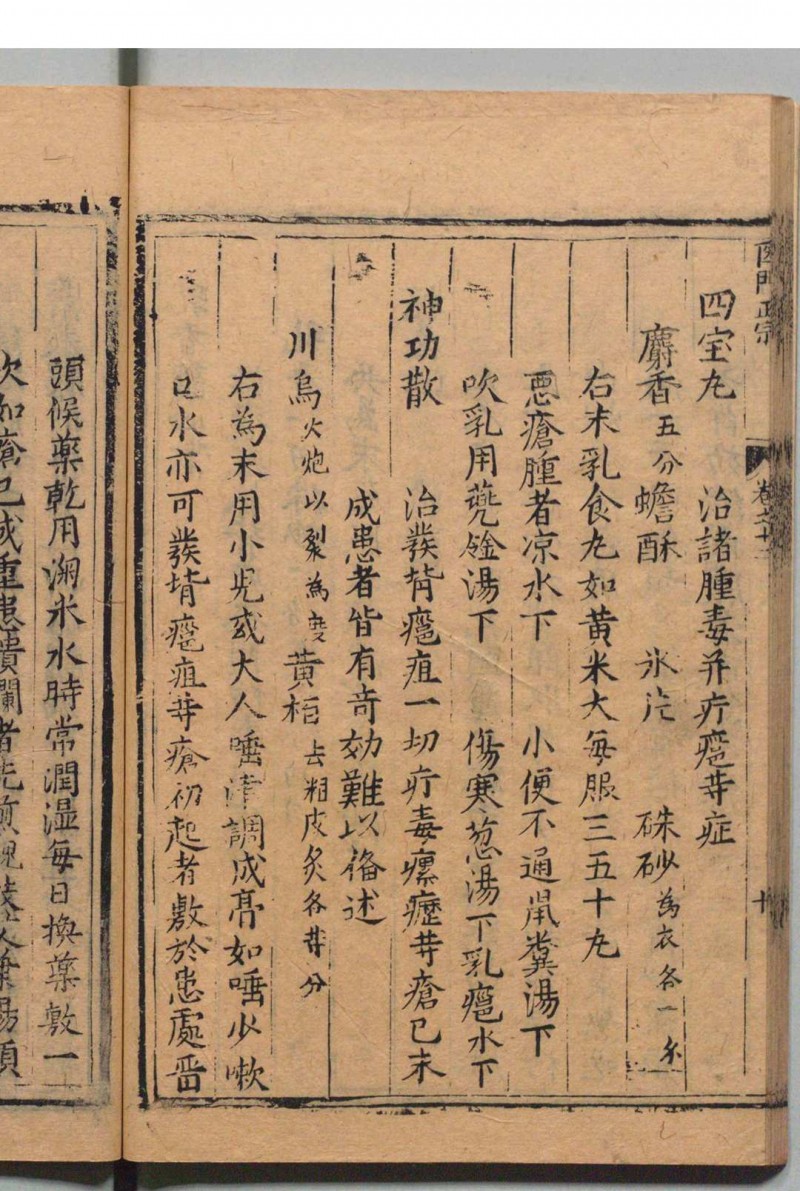 四宝丸　治諸腫毒并疔瘡等症
麝香五分蟾酥　氷片　硃砂為衣各一分
右末乳食丸如黄米大每服三五十丸
惡瘡腫者凉水下　小便不通鼠糞湯下
吹乳用甕薤湯下　傷寒葱湯下乳癰水下
神功散　治發背癰疽一切疔毒瘰癧等瘡已未
成患者皆有奇効難以俻述
川烏火炮以裂為度黄柏去粗皮炙各等分
右為末用小児或大人唾津調成膏如唾少嗽
口水亦可發背癰疽等瘡初起者敷於患處畄
頭候藥乾用淘米水時常潤湿每日換藥敷一
次如瘡已成重患潰爛者先煎槐枝艾葉湯
醫門正宗
卷之十二
十